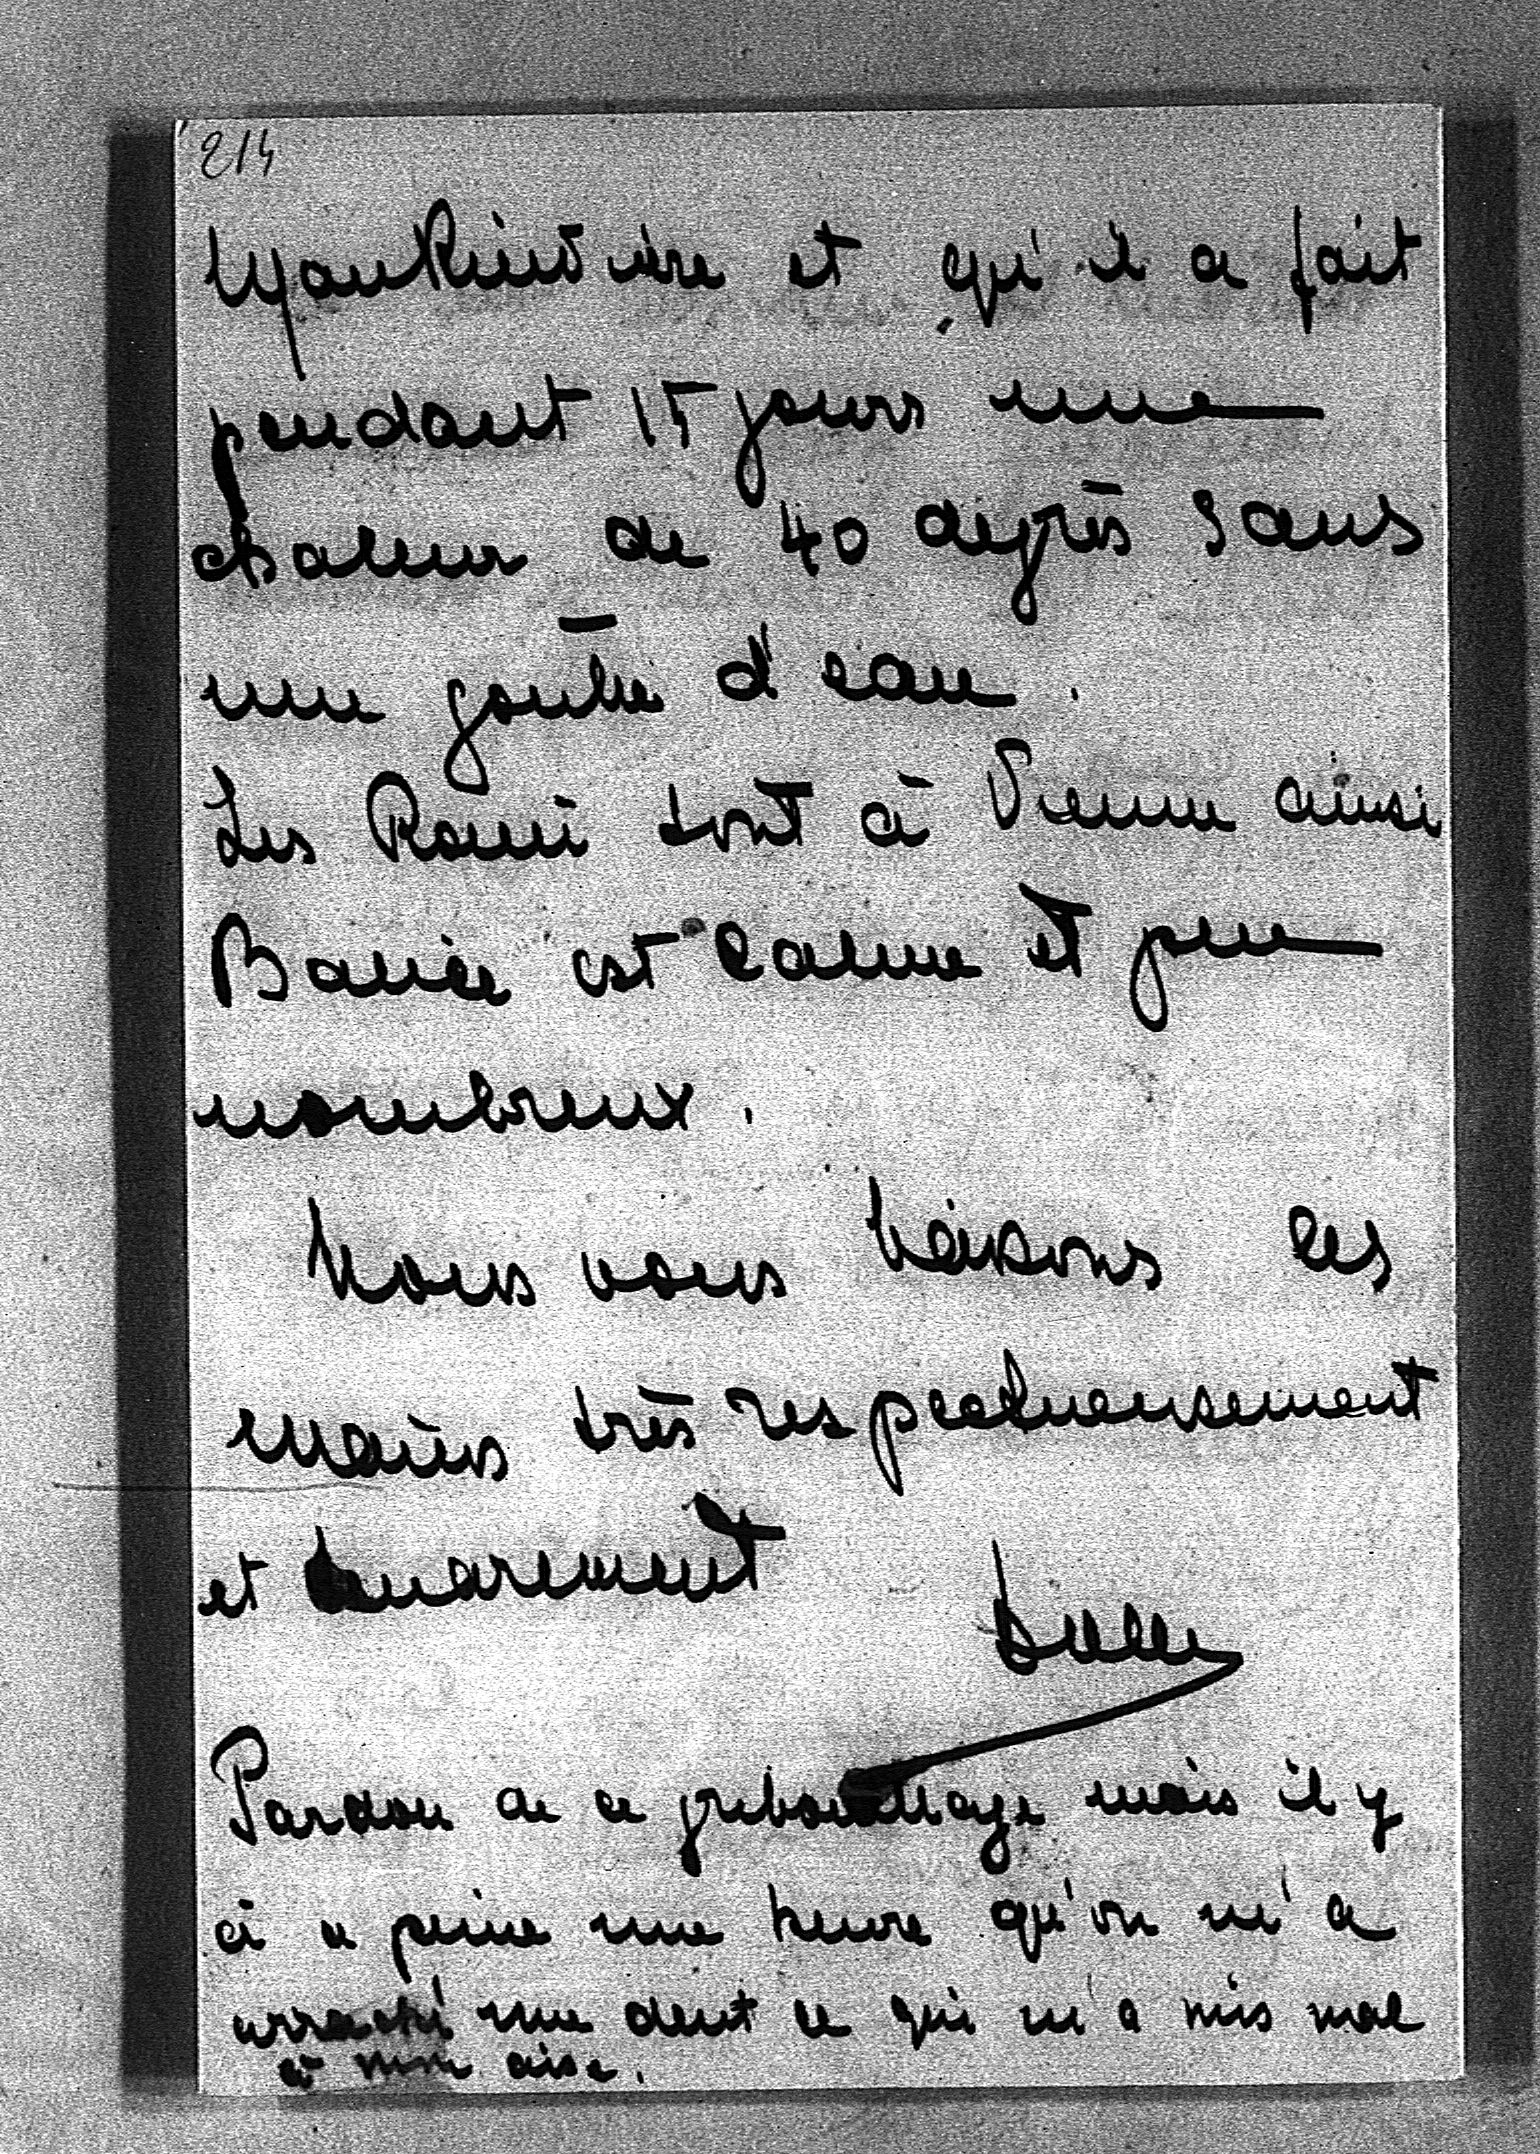 214
et qu'il a fait
pendant 15 jours une
chaleur de 40 degrès sans
une goutte d'eau.
Les sont à Vienne ainsi
est calme et peu
nombreux.
Nous vous baisons les
mains très respectueusement
et
Pardon de ce gribouillage mais il y
a a peine une heure qu'on m'a
arraché une dent ce qui m'a mis mal
a mon aise.